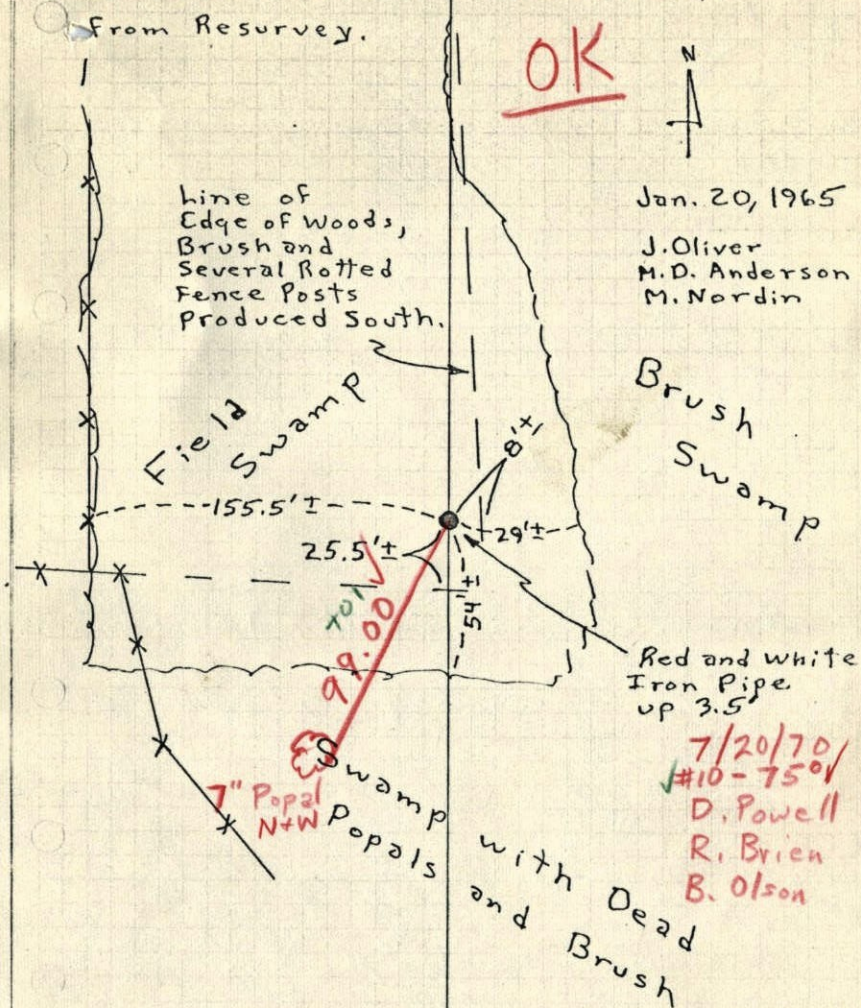 From Resurvey.
OK
N
Jan. 20, 1965
J. Oliver
M.D. Anderson
M. Nordin
Line of
Edge of Woods,
Brush and
Several Rotted
Fence Posts
Produced South.
Field
Swamp
Brush
Swamp
8'±
155.5'±
29'±
25.5'±
54'±
99.00
Red and White
Iron Pipe
up 3.5'
7/20/70
#10 - 75°
D. Powell
R. Brien
B. Olson
7" Popal
N+W
Swamp with Dead
Popals and Brush